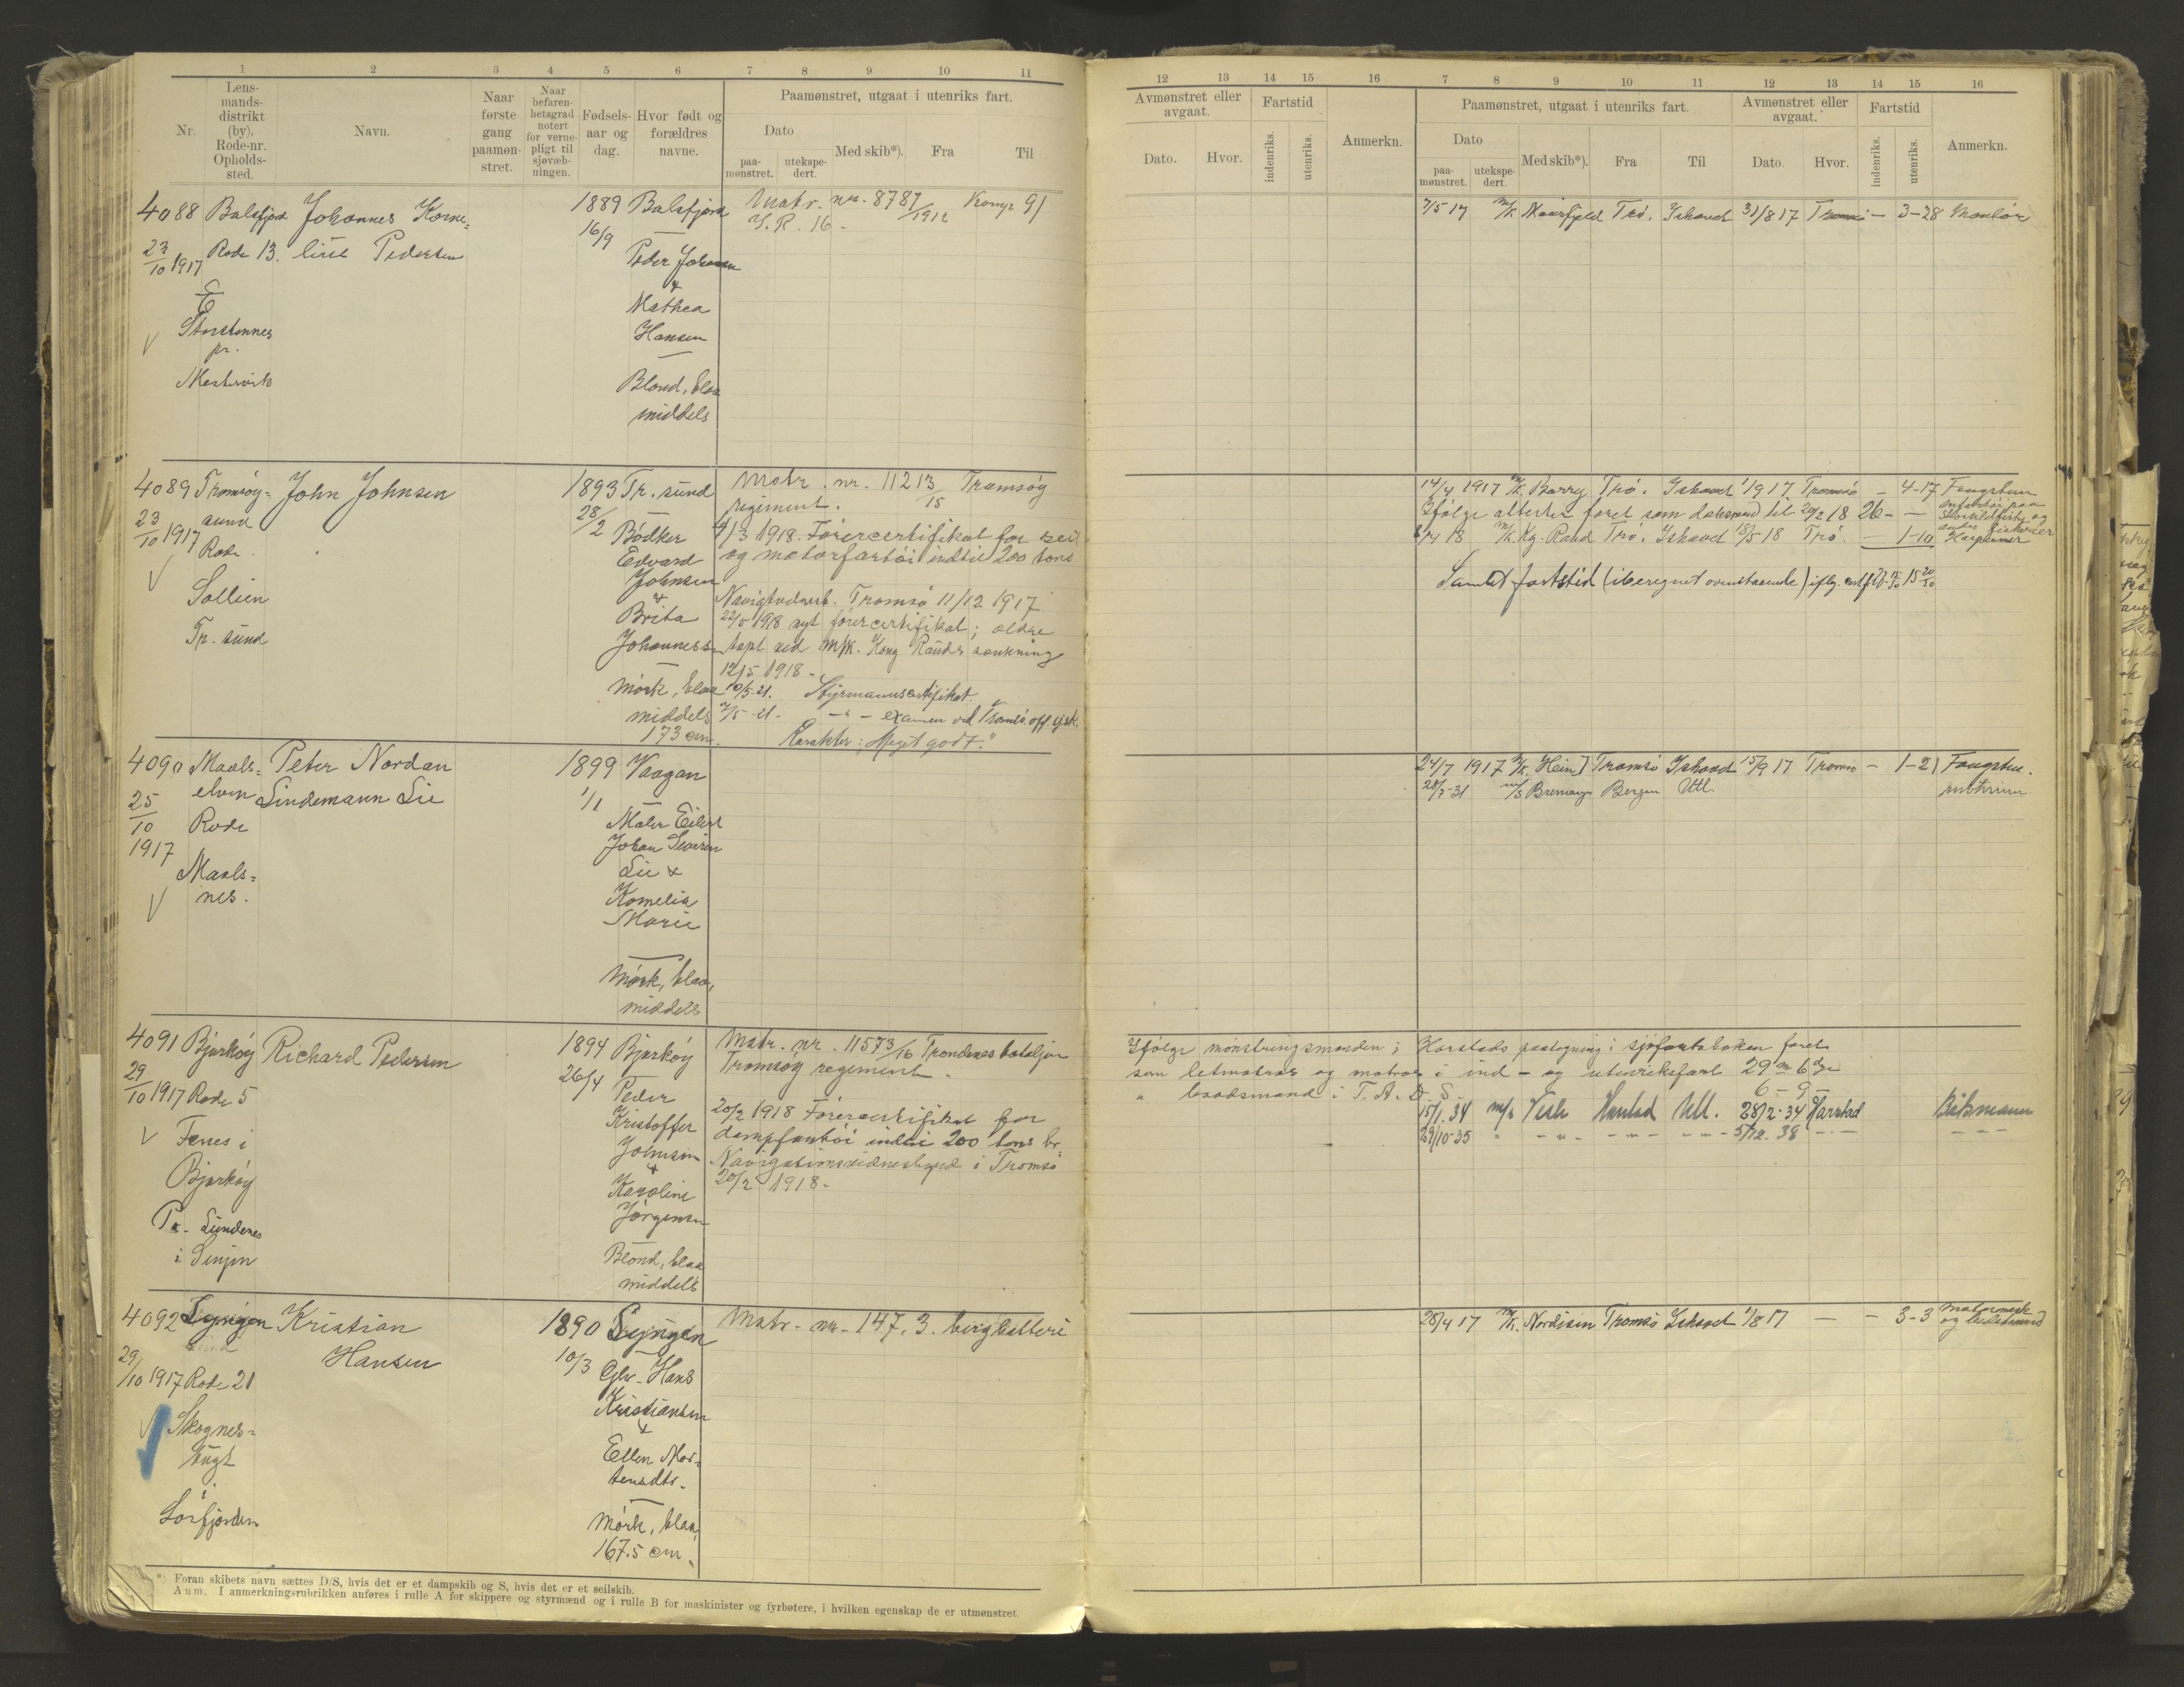 1 2 3 4 5 6 7 8 9 10 11
Nr.
Lens-
mands-
distrikt
(by).
Rode-nr.
Opholds-
sted.
Navn.
Naar
første
gang
paamøn-
stret.
Naar
befaren-
hetsgrad
notert
for verne-
pligt til
sjøvæb-
ningen.
Fødsels-
aar og
dag.
Hvor født og
forældres
navne.
Paamønstret, utgaat i utenriks fart.
Dato
paa-
mønstret.
utekspe-
dert.
Med skib*).
Fra
Til
4088 Balsfjord Johannes Korne=
23/10 1917 Rode 13. lius Pedersen
Storstennes
pr.
Mestervik
1889 Balsfjord
16/9
Peder Johansen
&
Mathea
Hansen
Blond, blaa
middels
Matr. nr. 878 1/1912 Komp 91
I.R. 16
4089 Tromsøy= John Johnsen
sund
23/10 1917 Rode
Sollien
Tr. sund
1893 Tr. sund
28/2 Bødker
Edvard
Johnsen
&
Brita
Johannesen
Mørk, blaa
middels
173 cm.
Matr. nr. 112 13/15 Tromsøy
regiment.
/3 1918. Førercertifikat for seil
og motorfartøi indtil 200 tons
Navigtvdnesb. Tromsø 11/12 1917
22/5 1918 nyt førercertifikat; ældre
tapt ved M/K. Kong Rauds sænkning
12/5 1918.
10/5-21. Styrmannscertifikat.
7/5-21. -"- examen ved Tromsø off. sjsk.
Karakter: "Meget godt."
4090 Maals= Peter Nordan
elven Lindemann Lie
25/10 Rode
1917
Maals=
nes.
1899 Vaagan
1/1
Maler Eilert
Johan Severin
Lie &
Kornelia
Marie
Mørk, blaa,
middels
4091 Bjarkøy Richard Pedersen
29/10 1917 Rode 5
Fenes i
Bjarkøy
Pr. Lundenes
i Senjen
1894 Bjarkøy
26/4 Peder
Kristoffer
Johnsen
&
Karoline
Jørgensen
Blond, blaa
middels
Matr. nr. 115 73/16 Trondenes bataljon
Tromsøy regiment.
20/2 1918 Førercertifikat for
dampfartøi indtil 200 tons br.
Navigationsvidnesbyrd i Tromsø
20/2 1918.
4092 Lyngen Kristian
Hansen
29/10 1917 Rode 21
Skognes=
bugt
i
Sørfjorden
1890 Lyngen
10/3 Hans
Kristiansen
&
Ellen Mor=
tensdtr.
Mørk, blaa,
167.5 cm.
Matr. nr. 147. 3. bergbatteri
*) Foran skibets navn sættes D/S, hvis det er et dampskib og S, hvis det er et seilskib.
Anm. I anmerkningsrubrikken anføres i rulle A for skippere og styrmænd og i rulle B for maskinister og fyrbøtere, i hvilken egenskap de er utmønstret.
12 13 14 15 16 7 8 9 10 11 12 13 14 15 16
Avmønstret eller
avgaat.
Dato.
Hvor.
Fartstid
indenriks.
utenriks.
Anmerkn.
Paamønstret, utgaat i utenriks fart.
Dato
paa-
mønstret.
utekspe-
dert.
Med skib*).
Fra
Til
Avmønstret eller
avgaat.
Dato.
Hvor.
Fartstid
indenriks.
utenriks.
Anmerkn.
7/5 17 M/K. Trø. Ishavet 31/8 17 Tromsø - 3-28 Montør
14/4 1917 M/K. Barry Trø. Ishavet 1/9 17. Tromsø - 4-17 Fangstm
Ifølge attester faret som dæksmand til 20/2 18 26 - -
/4 18 M/K. Kg. Raud Trø. Ishavet 18/5 18 Trø. - 1-10 Harpuner
Samlet fartstid (iberegnet ovenstaaende) iflg.
24/7 1917 M/K. Heim I Tromsø Ishavet 15/9 17 Tromsø - 1-21 Fangstm.
28/7-31 M/S Bremanger Bergen Utl.
Ifølge mønstringsmanden i Harstads paategning i sjøfartsboken faret
som letmatros og matros i ind- og utenriksfart 29 m 6 dge
" baadsmand i T.A.D.S. 6 - 9 -
15/1.34 M/K Vesle Harstad Utl. 28/2-34 Harstad Båtsmann
29/10-35 " -"- -"- -"- 5/12.38 -"- -"-
28/4 17 M/K. Tromsø Ishavet 1/8 17 - - 3-3 Matormask